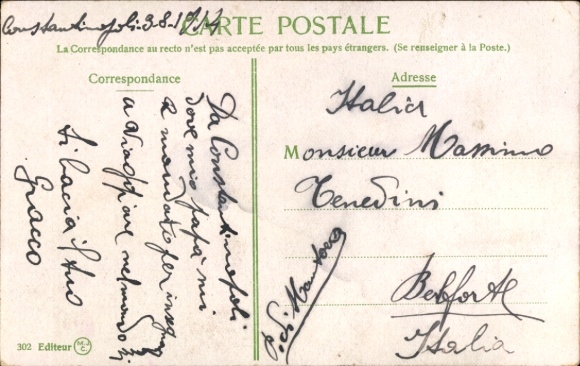 Constantinopoli 3-8-1914
CARTE POSTALE
La Correspondance au recto n'est pas acceptée par tous les pays étrangers. (Se renseigner à la Poste.)
Correspondance
Da Constantinopoli
dove mio papà mi
a mandato per
a viaggiare nel mondo
ti bacia il tuo
Gracco
Adresse
Italia
Monsieur Massimo
Tenedini
P. di Mantova
Borgoforte
Italia
302 Editeur MJC